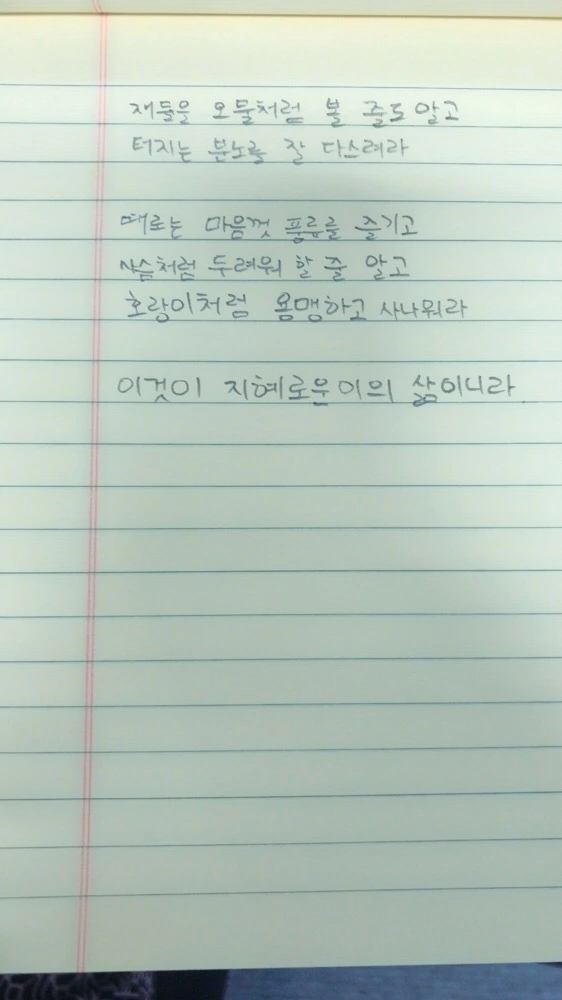 재물을 오물처럼 볼 줄도 알고
터지는 분노를 잘 다스려라
때로는 마음껏 풍류를 즐기고
사슴처럼 두려워 할 줄 알고
호랑이처럼 용맹하고 사나워라
이것이 지혜로운이의 삶이니라.